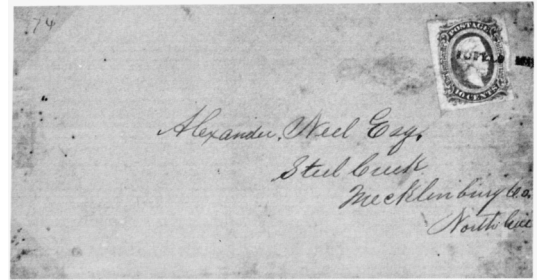 74
POSTAGE
10 CENTS
Alexander Neel Esqr
Steel Creek
Mecklinburg Co.
North